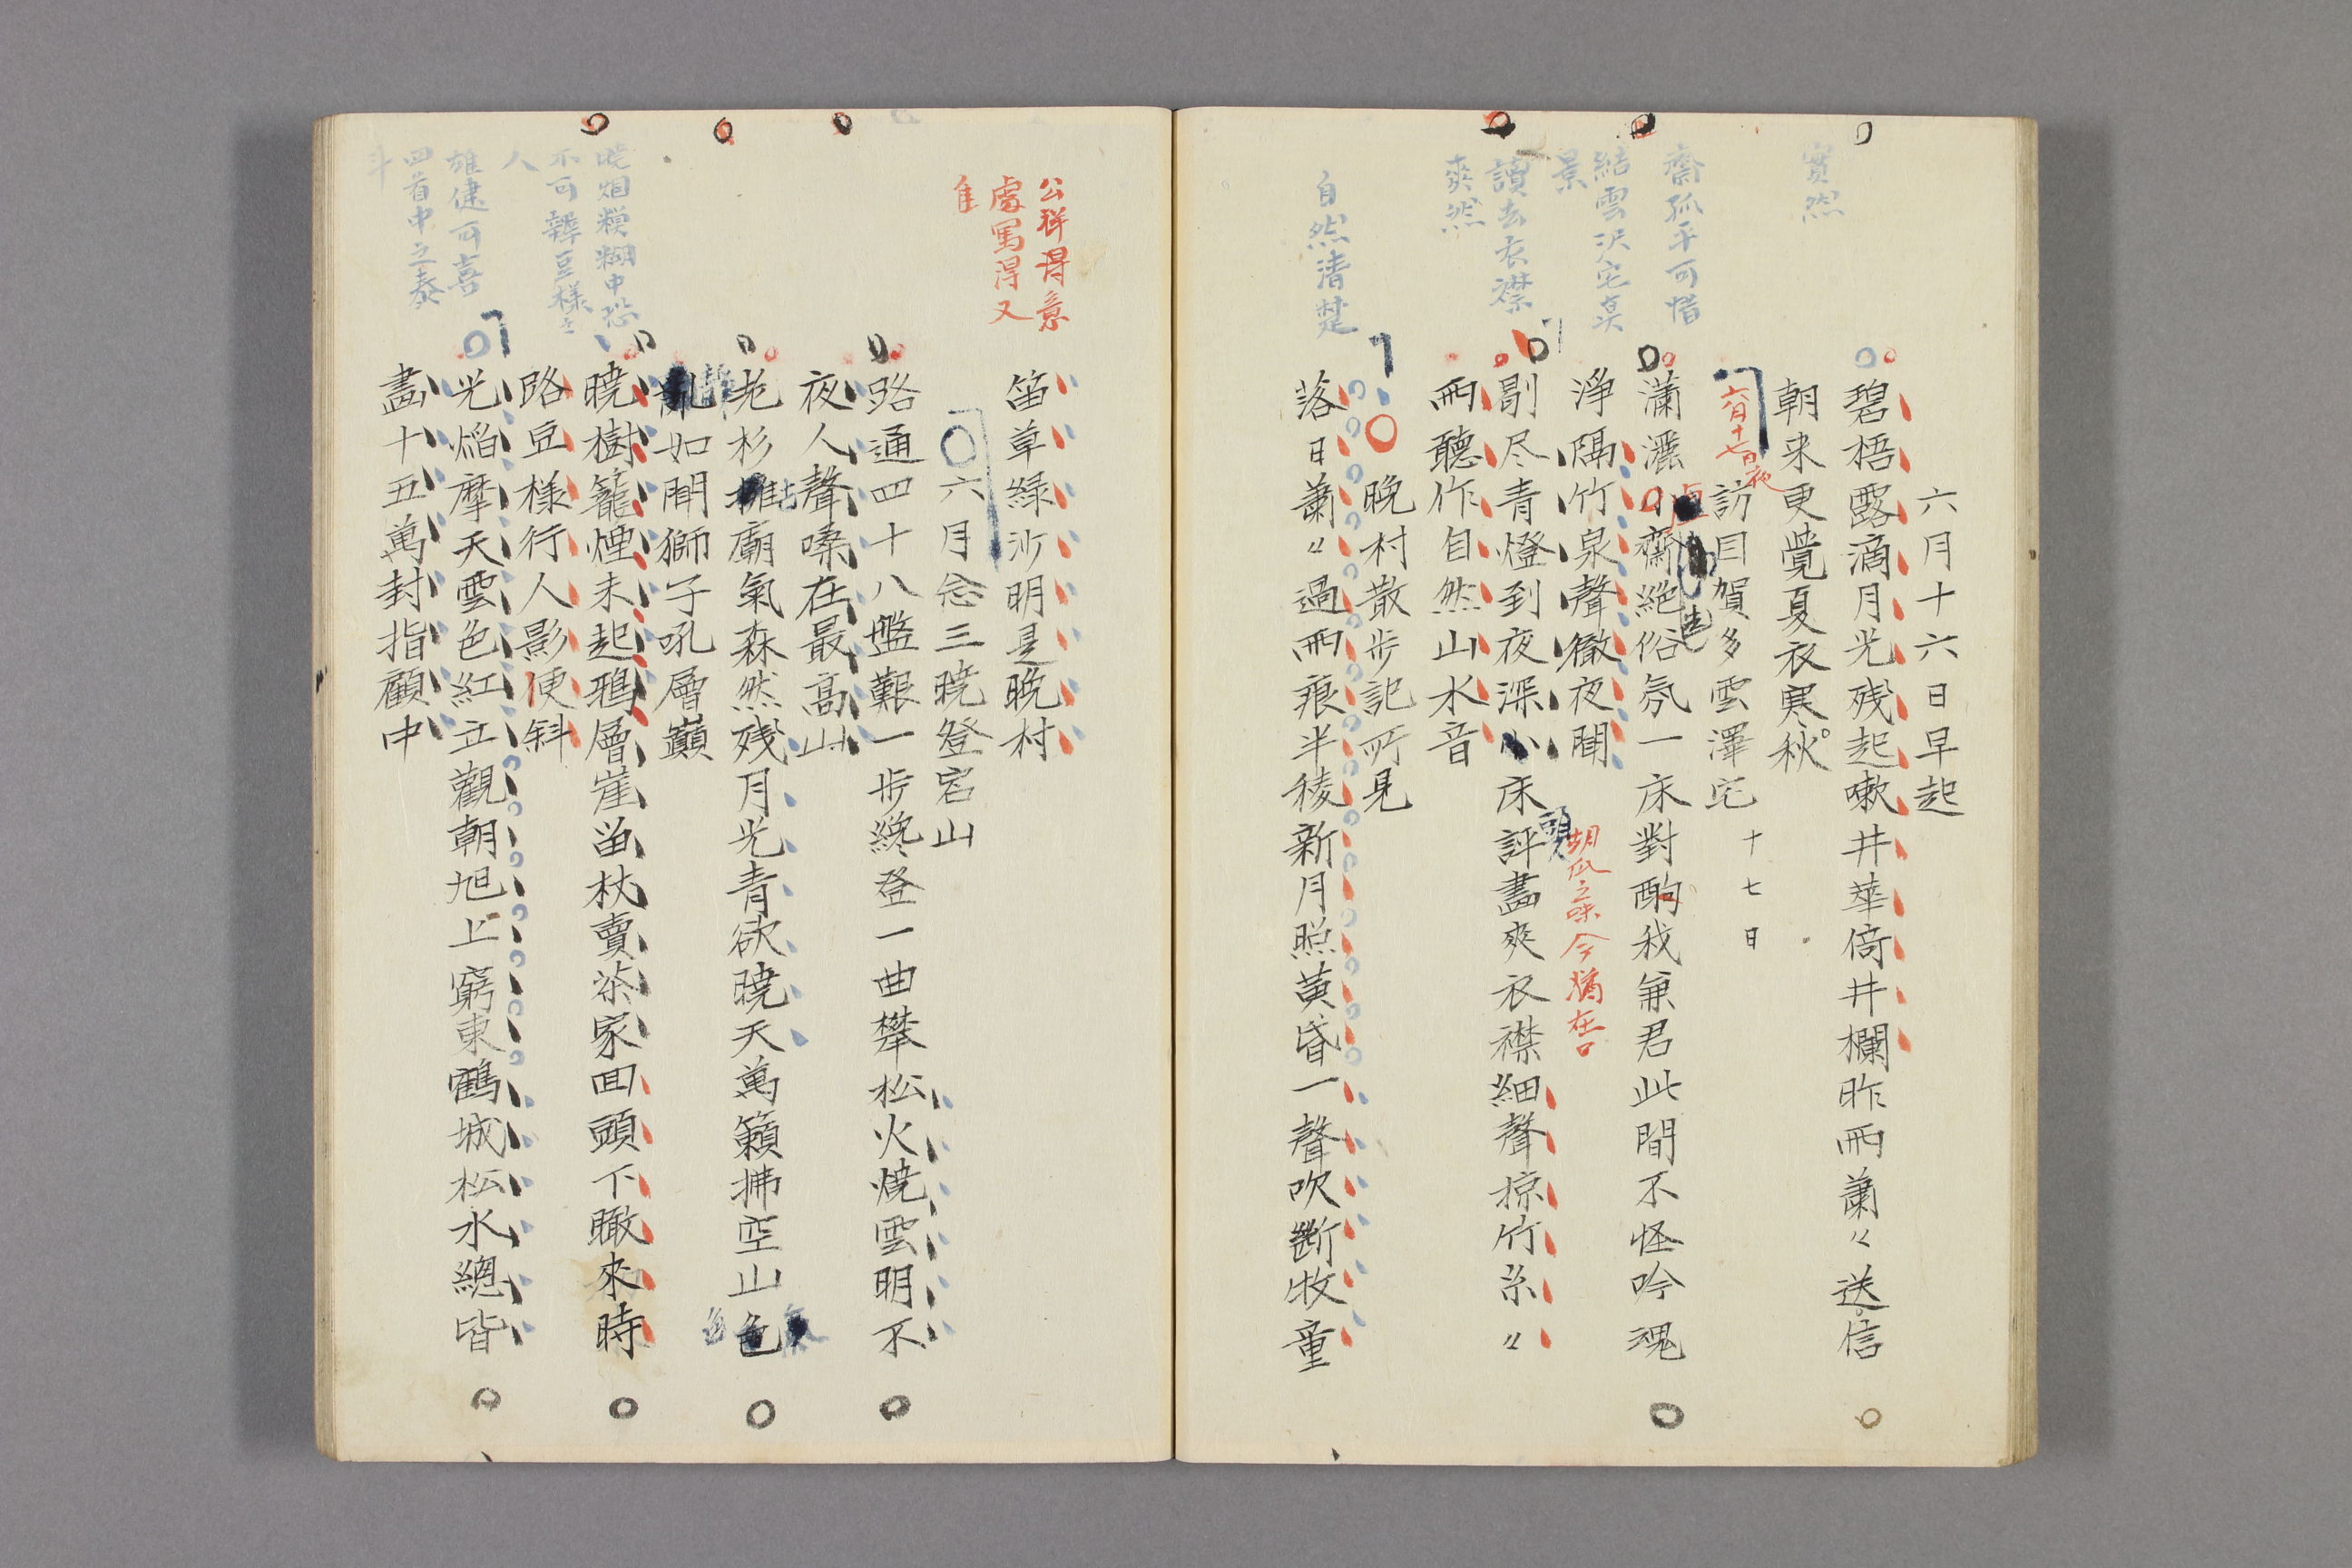 實然
齋孤平可惜
結雲沢宅真
景
讀去衣襟
爽然
自然清楚
六月十六日早起
碧梧露滴月光残起嗽井華倚井欄昨雨蕭〻送信
朝来更覺夏衣寒秋
六月十七日夜
訪目賀多雲澤宅 十七日
瀟灑小齋絶俗氛一床對酌我兼君此間不怪吟魂
淨隔竹泉聲徹夜聞
胡瓜之味今猶在口
頭
剔尽青燈到夜深小床評畵爽衣襟細聲掠竹糸〻
雨聽作自然山水音
晩村散歩記所見
落日蕭〻過雨痕半稜新月照黄昏一聲吹断牧童
公祥得意
處罵得又
隹
暁烟糢糊中恐
不可辨豆様之
人
雄健可喜
四首中之泰
斗
笛草緑沙明是晩村
六月念三暁登宕山
路通四十八盤艱一歩纔登一曲攀松火焼雲明不
夜人聲喿在最高山
老杉 廟氣森然残月光青欲曉天萬籟拂空山色
亂如聞獅子吼層巓
曉樹籠煙未起鴉層崖留杖賣茶家回頭下瞰來時
路豆様行人影便斜
光焔摩天雲色紅立觀朝旭上窮東鶴城松水總皆
畵十五萬封指顧中